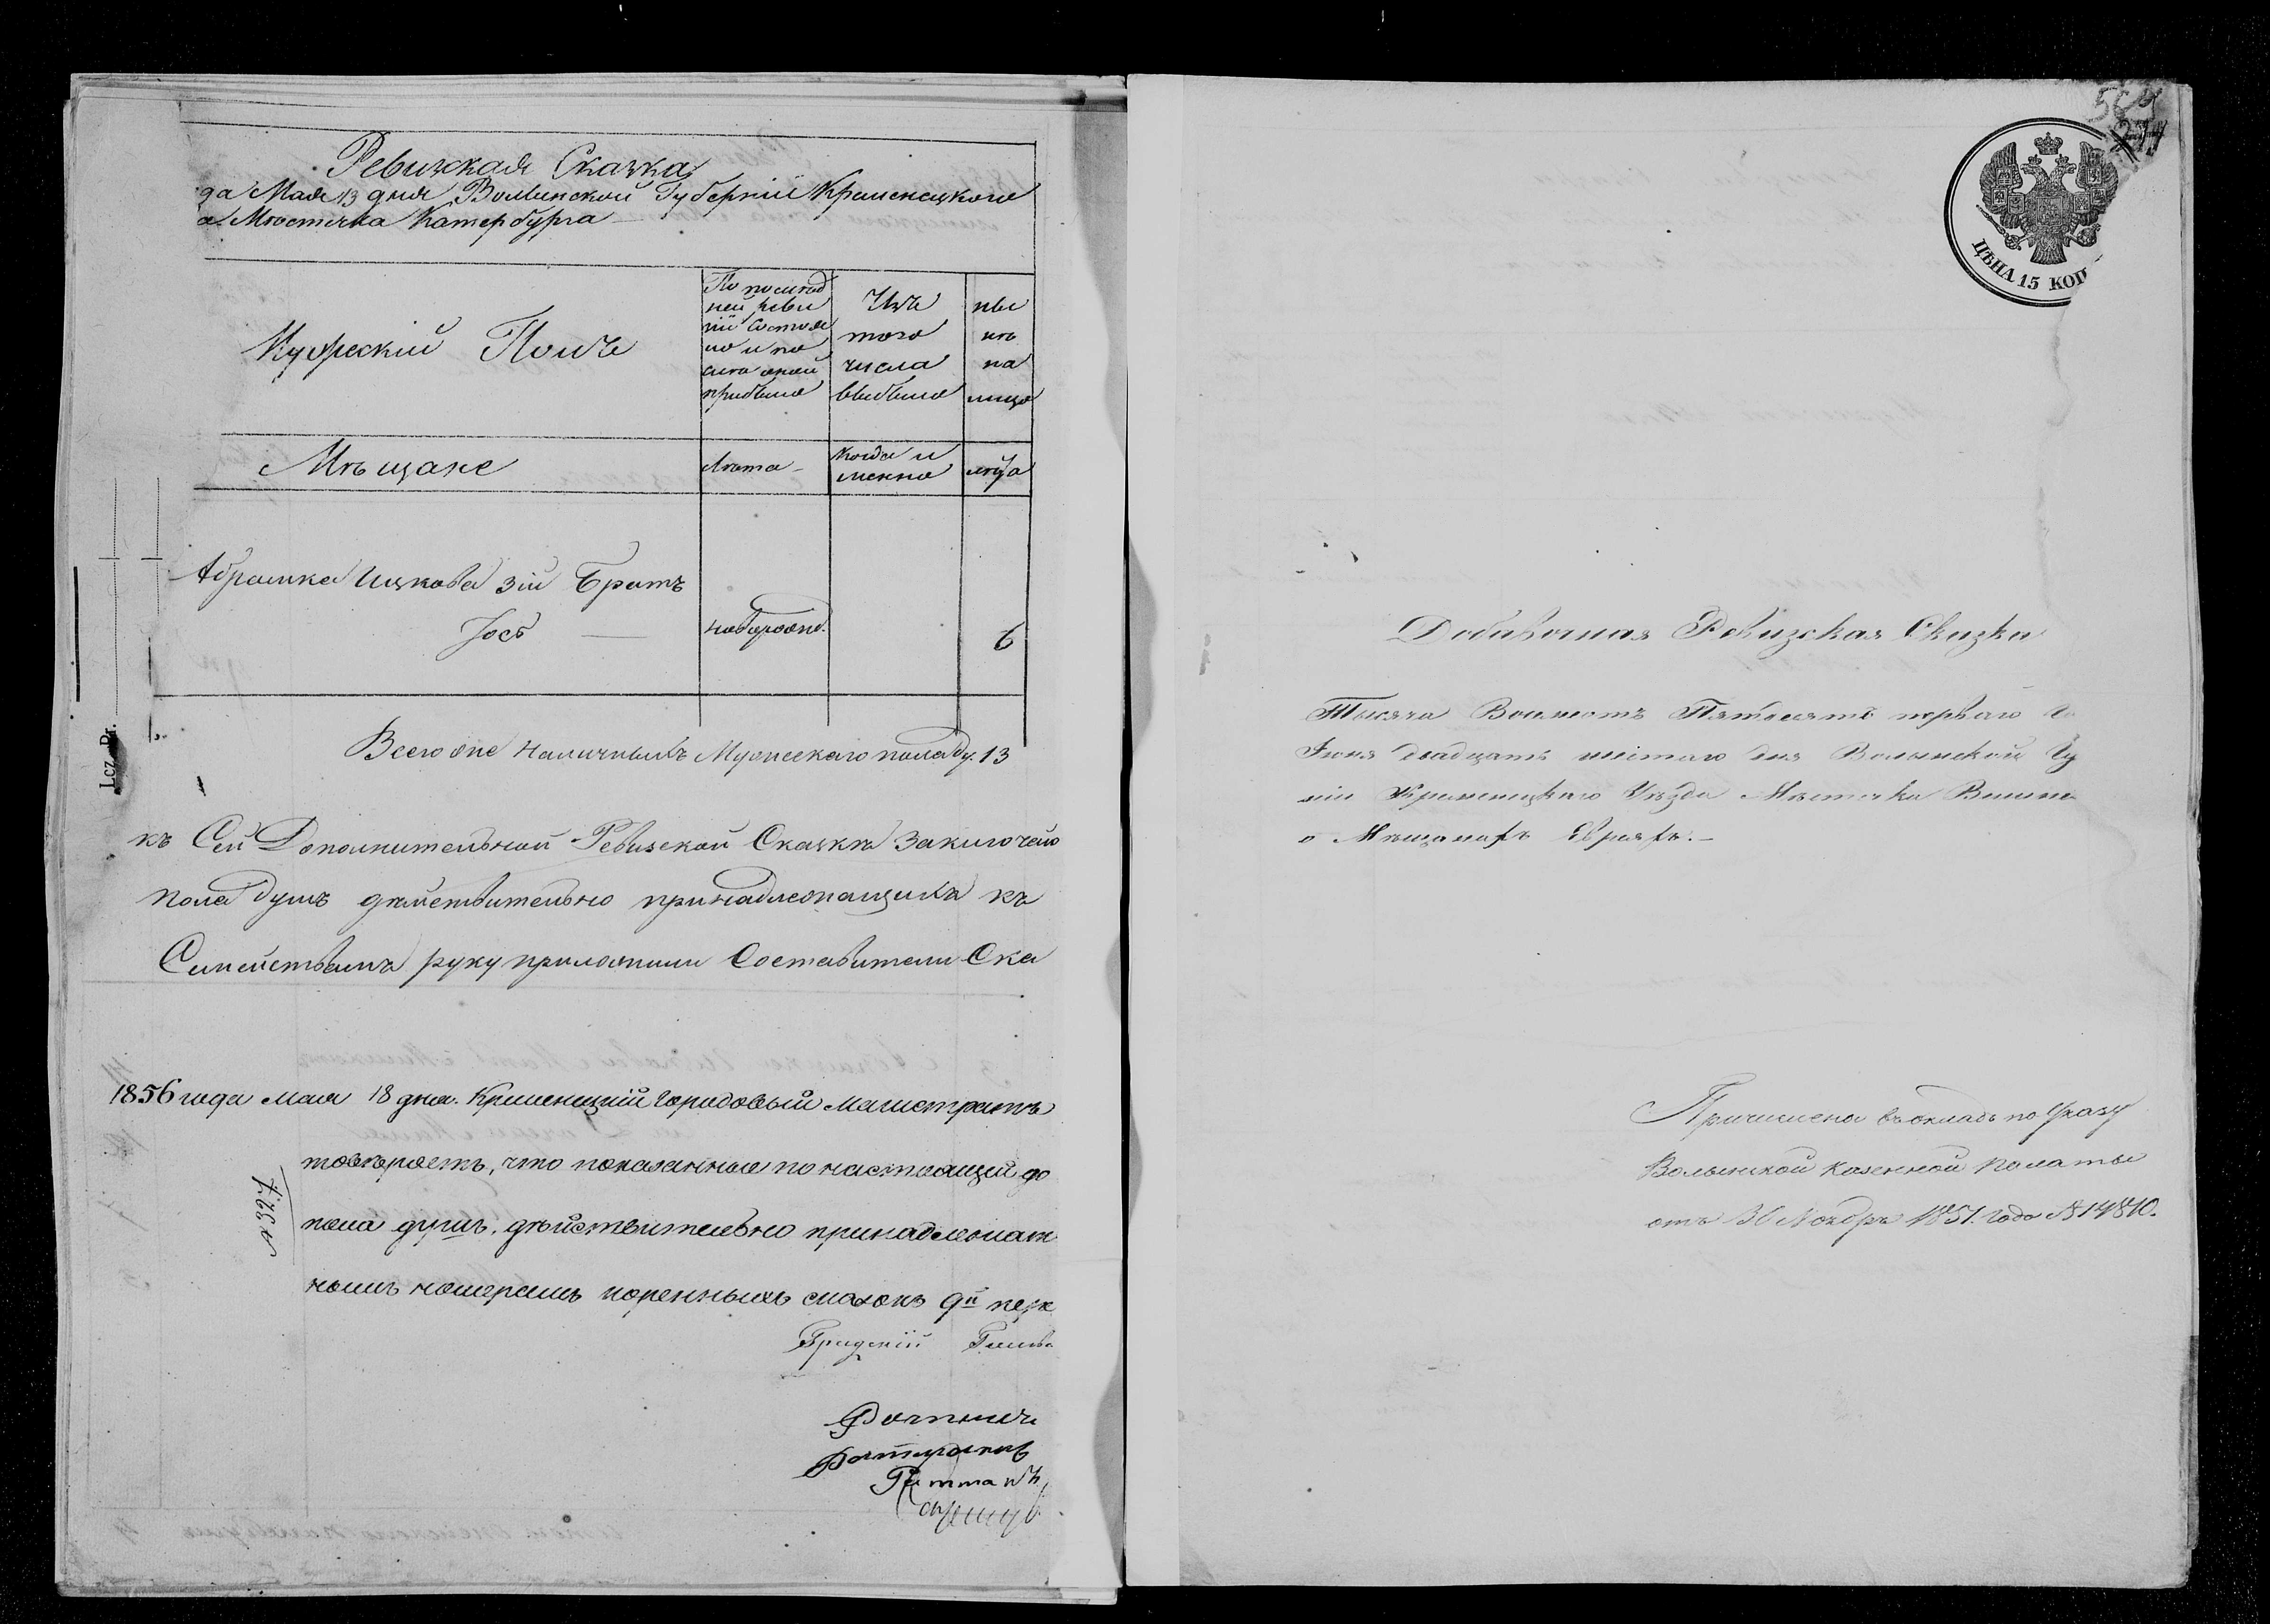 Ревижская Скажка
да Мая 13 дня Волынской Губерніи Кременецкого
а Мѣстечка Катербурга
Мужескій Полъ
По послед
ней реви
зіи состоя
ло и по
слѣ оной
прибыло
Изъ
того
числа
выбыло
ны
нѣ
на
лицо
Мѣщане
Лѣта
Когда и
менно
лѣта
Абрамка Ицкова 3й Братъ
Іось
новорожд.
6
Всего оне Наличныхъ Мужескаго пола ду. 13
къ Сей Дополнительной Ревизской Скажкѣ Заключаю
пола душъ действительно принадлежащихъ къ
Семействамъ руку приложили Составители Ска
1856 года мая 18 дня. Кременецкій городовый магистратъ
товѣряетъ, что показанные по настоящей до
пола душъ, дѣйствительно принадлежатъ
нымъ номерамъ коренныхъ сказокъ 9й
№ 327
Ратманъ
Ратманъ
564
ЦѢНА 15 КОП
Добавочная Ревизская Сказка
Тысяча Восемсотъ Пятдесятъ перваго Го
Іюня двадцать шестаго дня Волынской Гу
ніи Кременецкаго Уѣзда Мѣстечка Вишне
о Мѣщанахъ Евреяхъ.
Причислена въ окладъ по Указу
Волынской Казенной Палаты
отъ 30 Ноября 1851. Года № 14810.